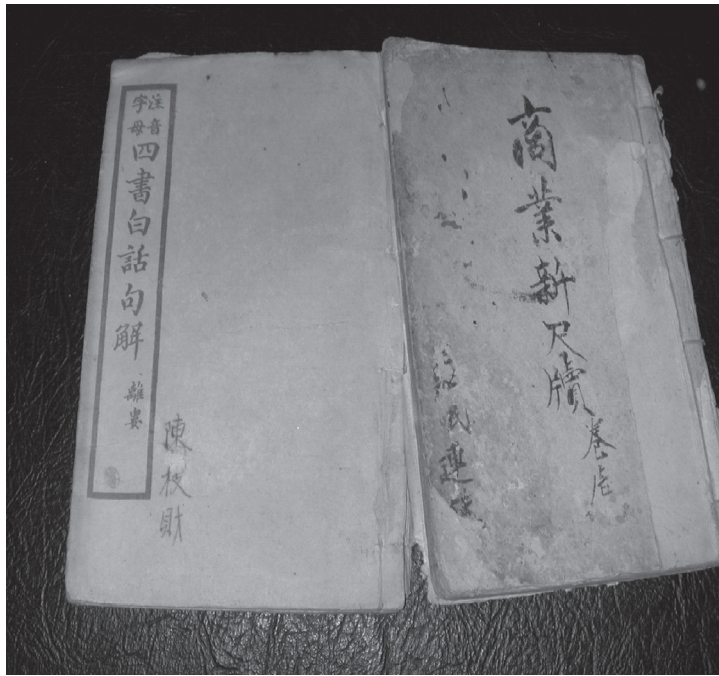 注音
字母
四書白話句解
離婁
陳枝財
商業新尺牘
卷